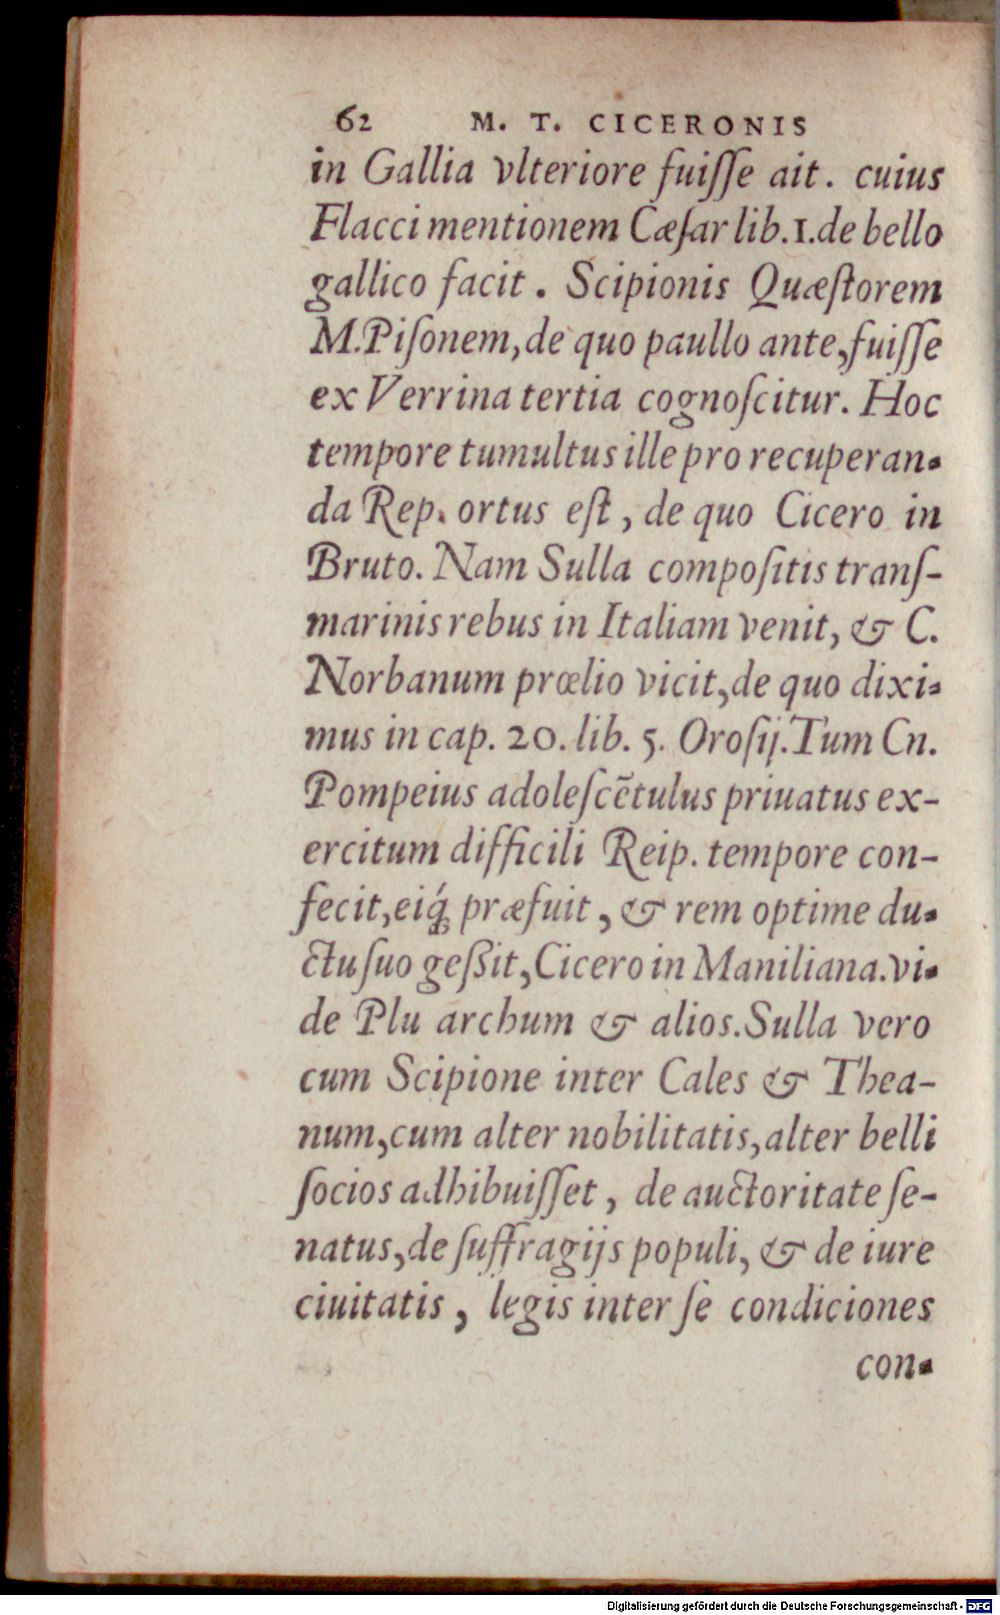 62 M. T. CICERONIS
in Gallia vlteriore fuiſſe ait. cuius
Flacci mentionem Cæſar lib. 1. de bello
gallico facit. Scipionis Quæſtorem
M. Piſonem, de quo paullo ante, fuiſſe
ex Verrina tertia cognoſcitur. Hoc
tempore tumultus ille pro recuperan-
da Rep. ortus eſt, de quo Cicero in
Bruto. Nam Sulla compoſitis tranſ-
marinis rebus in Italiam venit, & C.
Norbanum prœlio vicit, de quo dixi-
mus in cap. 20. lib. 5. Oroſij. Tum Cn.
Pompeius adoleſcẽtulus priuatus ex-
ercitum difficili Reip. tempore con-
fecit, eiq́; præfuit, & rem optime du-
ctu ſuo geßit, Cicero in Maniliana. vi-
de Plu archum & alios. Sulla vero
cum Scipione inter Cales & Thea-
num, cum alter nobilitatis, alter belli
ſocios adhibuiſſet, de auctoritate ſe-
natus, de ſuffragijs populi, & de iure
ciuitatis, legis inter ſe condiciones
con-
Digitalisierung gefördert durch die Deutsche Forschungsgemeinschaft - DFG